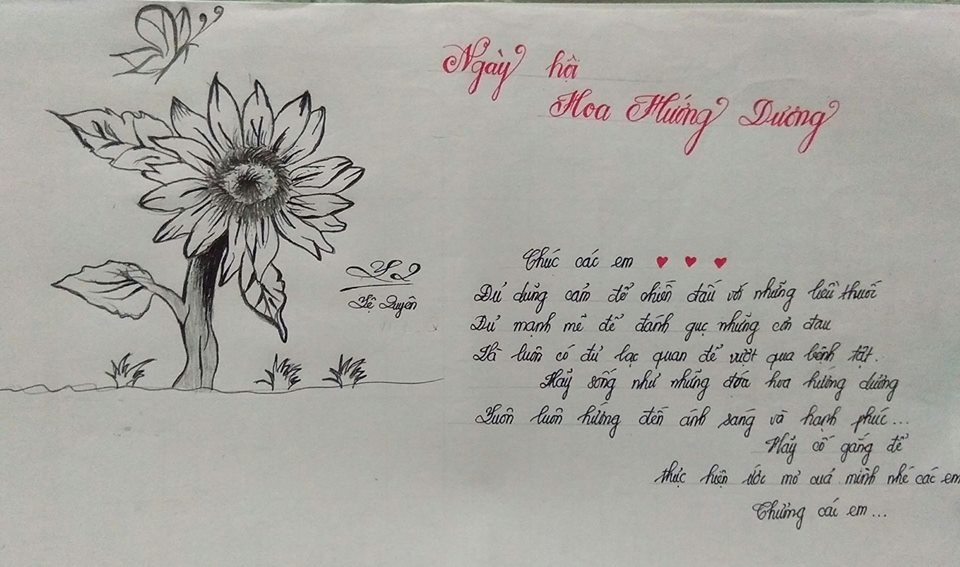 Ngày hội
Hoa Hướng Dương
Chúc các em
Đủ dũng cảm để chiến đấu với những liều thuốc
Đủ mạnh mẽ để đánh gục những cơn đau
Và luôn có đủ lạc quan để vượt qua bệnh tật.
Hãy sống như những đóa hoa hướng dương
Luôn luôn hướng đến ánh sáng và hạnh phúc...
Hãy cố gắng để
thực hiện ước mơ của mình nhé các em
Thương các em...
Lệ Quyên